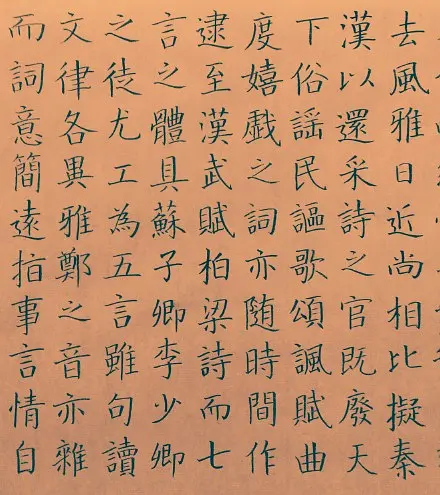 去風雅日近尚相比擬秦
漢以還采詩之官既廢天
下俗謡民謳歌頌諷賦曲
度嬉戲之詞亦随時間作
逮至漢武賦柏梁詩而七
言之體具蘇子卿李少卿
之徒尤工為五言雖句讀
文律各異雅鄭之音亦雜
而詞意簡遠指事言情自